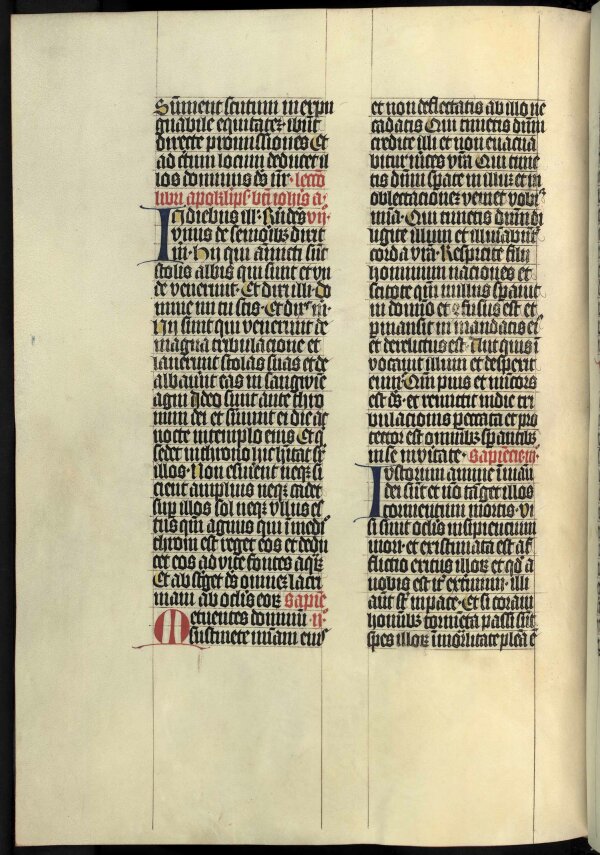 Sument scutum inexpu
gnabile equitate· ibūt
directe promissiones Et
ad c̄tum locum deducet il
los dominus d̄s nr̄· lectō
libri apoklips̄ btī ioh̄is a·
In diebus ill· Rn̄des vij·
vnus de seniorib; dixit
m̄· Hij qui amicti sūt
stolis albis qui sunt et vn
de venerunt· Et dixi illi· Do
mine mi tu scis· Et dix̄ m̄·
Hij sunt qui venerunt de
magna tribulacione et
lauerunt stolas suas et de
albauūt eas in sangwīe
agni Ideo sunt ante thro
num dei et ẜuiunt ei die ac
nocte in templo eius Et q̄
sedet in throno inhītat sr̄
illos· Non esurient neq; si
cient amplius neq; cadet
sup illos sol neq; vllus es
tus qm̄ agnus qui ī medī
throni est reget eos et dedu
cet eos ad vite fontes aq̄ꝝ
Et absteget d̄s omnez lacri
mam ab oclis eoꝝ Sapiē
Metuentes dominū· ij·
sustinete mīam eius
et non deflectatis ab illo ne
cadatis Qui timetis dūm
credite illi et non euacua
bitur m̄ces vr̄a Qui time
tis dūm sp̄ate in illuz et in
oblectacionez veniet vobī
mīa· Qui timetis dūm di
ligite illum et illuīabūt̄
corda vr̄a· Respicite filij
hominum naciones et
scitote qm̄ nullus sp̄auit
in domīo et ꝯfusus est et
p̄mansit in mandatis ei᷒
et derelictus est· Aut quis ī
vocauit illum et despexit
eum· Qm̄ pius et m̄icors
est d̄s· et remittit in die tri
bulacionis peccata et pro
tector est omnib; sp̄antib;
in se in v̄itate· Sapiecie iij·
Iustorum anime ī manu
dei sūt et nō tāget illos
tormentum mortis· Vi
si sunt oclis insipiencium
mori· et existimata est af
flictio exitus illoꝝ et qd̄ a
nobis est it̄ extmīum· illi
aut̄ st̄ in pace· Et si coram
hominib; tormēta passi sūt
spes illoꝝ ī mōrlitate plēa ē